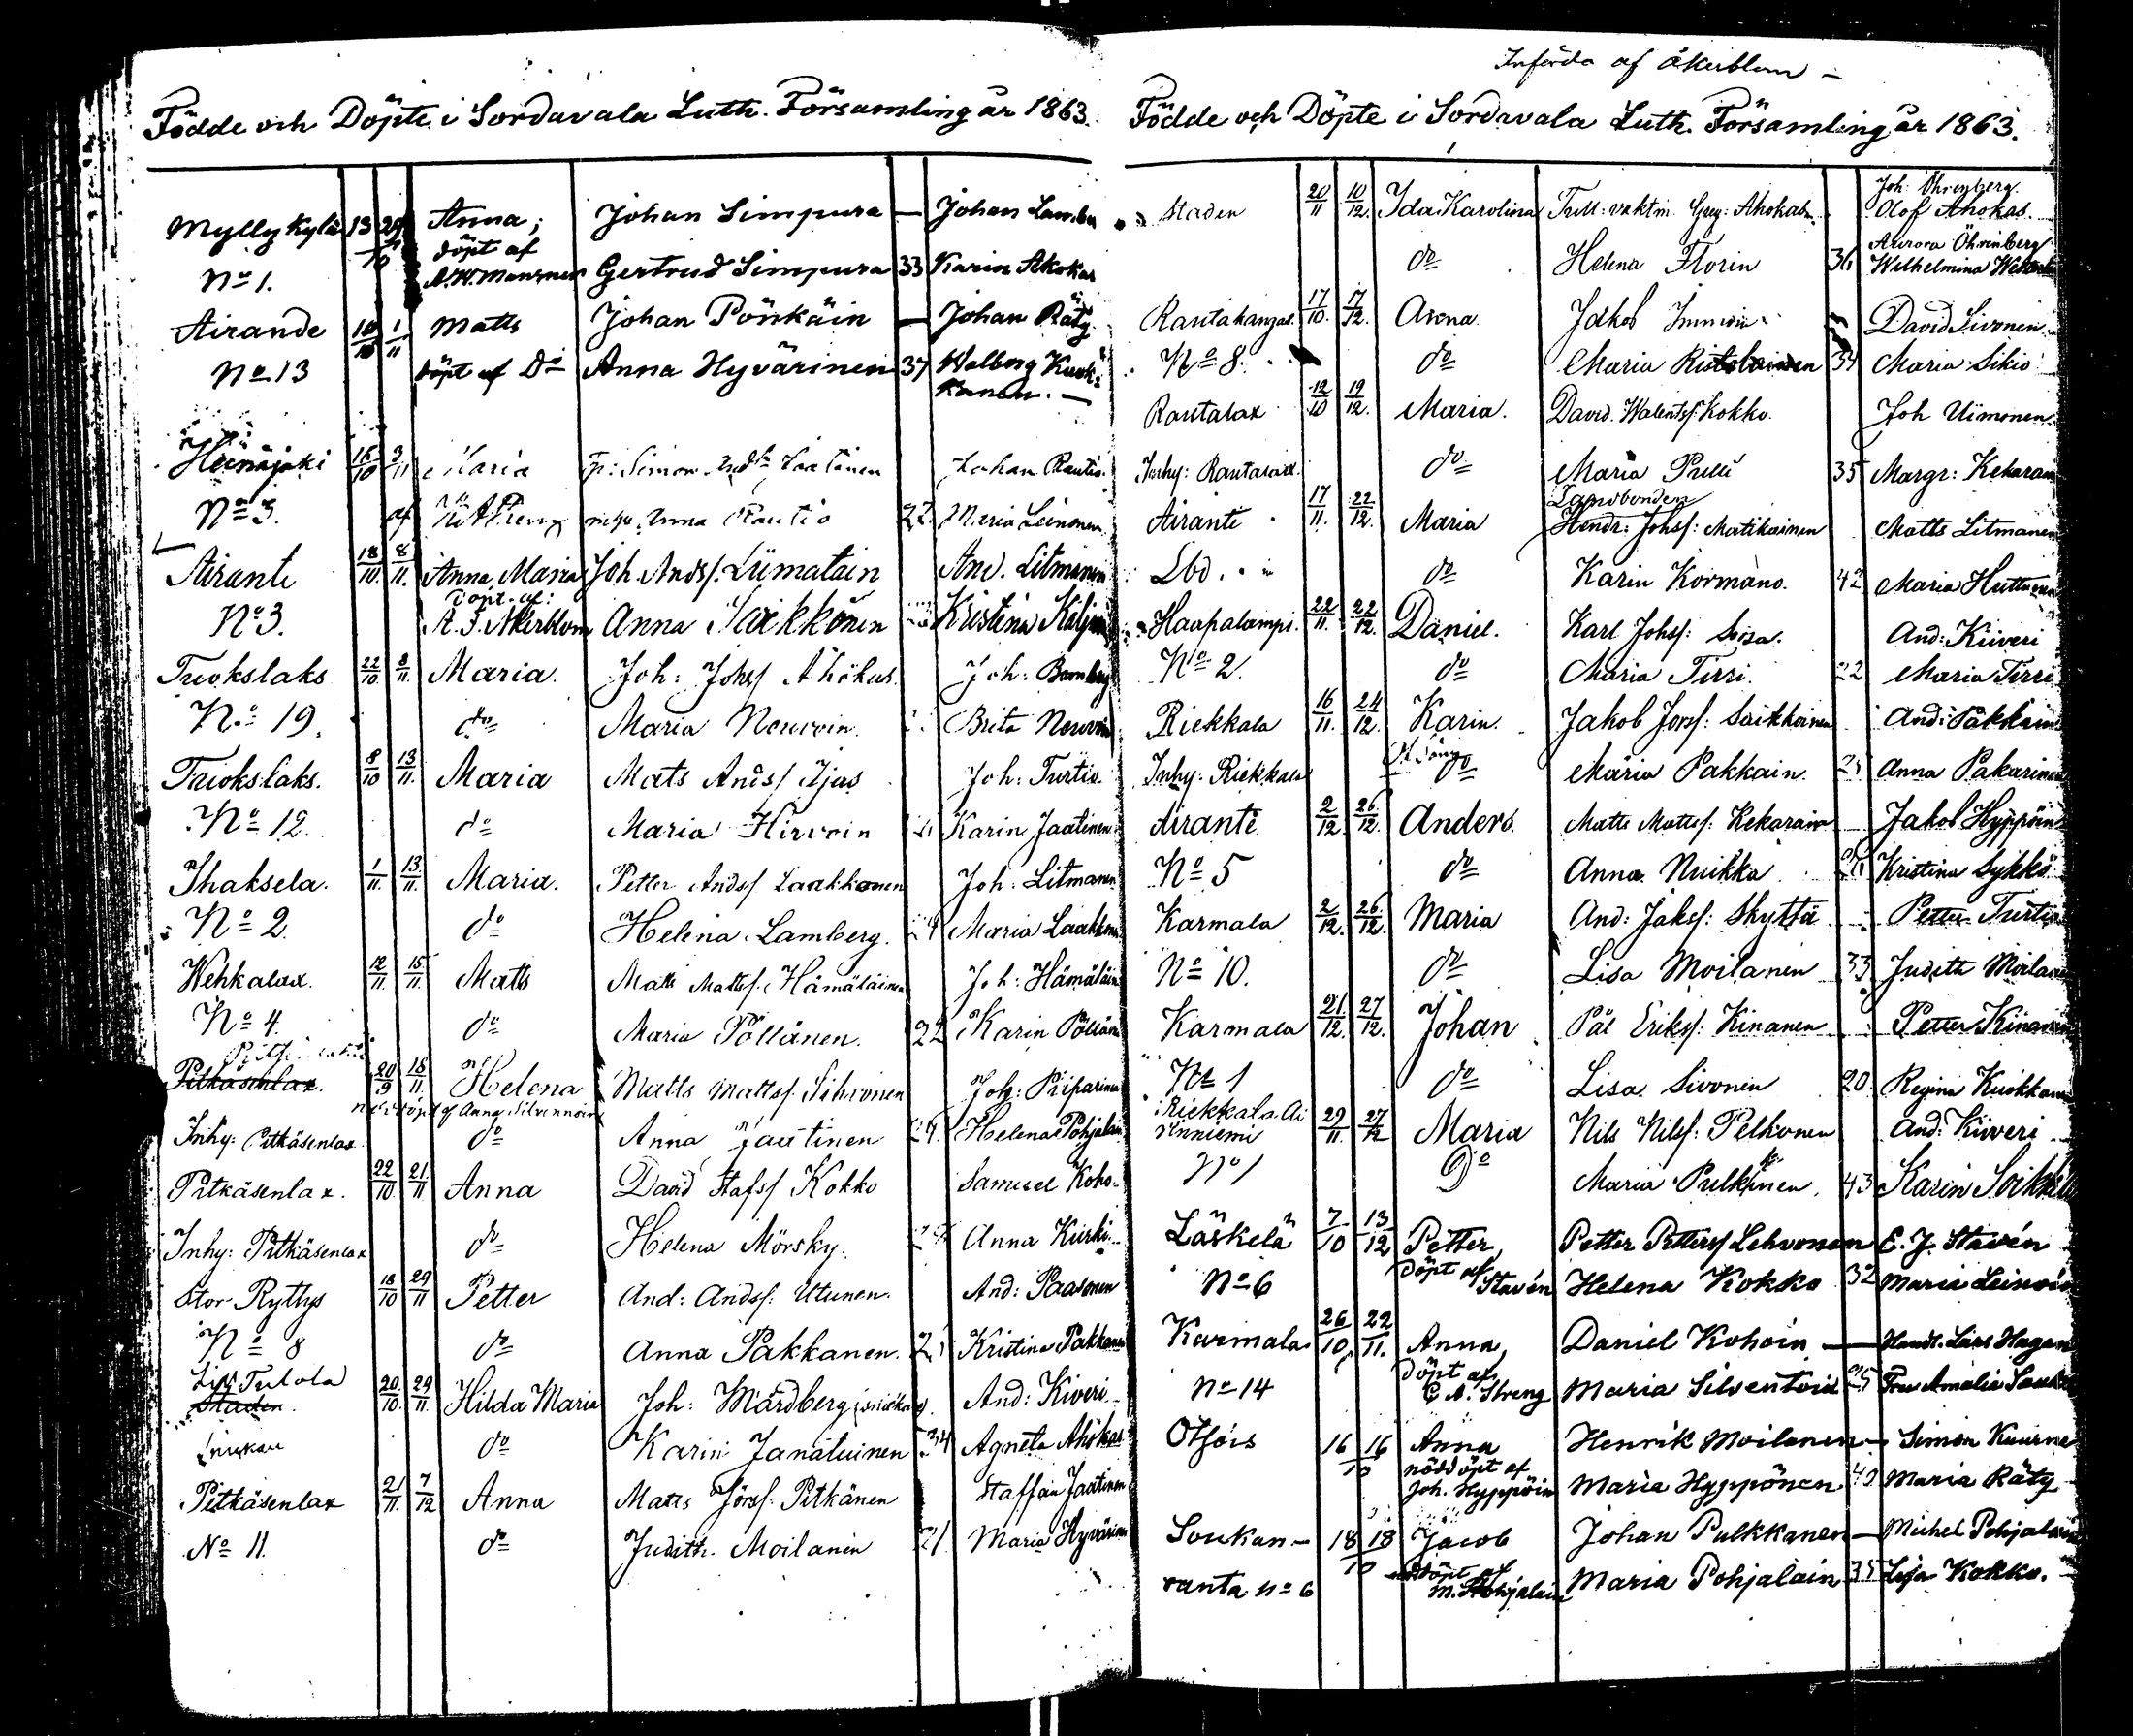 Födde och Döpte i Sordavala Luth. Församling år 1863.
Mylly Kylä 13 29 Anna, Johan Simpura — Johan
10 döpt af
No 1. Gertrud Simpura 33 Karin Ahokas
Airande 10/10 1/11 Matts Johan Pönkäin — Johan Räty.
No 13 döpt af Do Anna Hyvärinen 37 Walborg Kuok-
kanen. —
Heinäjoki 16/10 3/11 Maria Simon Johan Rautio
No 3. af Anna Rautio 22 Maria Leinonen
Airante 18/10. 8/11. Anna Maria Joh. Andsf. Liimatain And. Litmanen
döpt. af:
No 3. A. F. Åkerblom Anna Kristina
Tuokslaks 22/10 8/11. Maria. Joh: Johsf Ahokas. Joh: Bomberg
No 19. do Maria Neuvoin. Brita
Tuokslaks. 8/10 13/11. Maria Mats Andsf Ijas Joh: Turtia
No 12. do Maria Hirvoin Karin Jaatinen
Ihaksela. 1/11. 13/11. Maria. Petter Andsf Laakkonen Joh: Litmanen
No 2. do Helena Lamberg. 24 Maria Laakkonen
Wehkalax. 12/11. 15/11. Matts Matts Mattsf. Hämäläinen Joh: Hämäläin
No 4. do Maria Pöllänen. 22 Karin Pöllän
Pitkäsenlax. 20/9 18/11. Helena Matts Mattsf. Sihvonen Joh: Piiparinen
nöddöpt af Anna Silvennoin
Inhy: Pitkäsenlax do Anna Jaatinen 29. Helena Pohjalain
Pitkäsenlax. 22/10. 21/11 Anna David Stafsf Kokko Samuel Koho.
Inhy: Pitkäsenlax do Helena Mörsky. Anna Kurki.
Stor Ryttys 18/10 29/11 Petter And: Andsf: Utunen. And: Paasonen
No 8 do Anna Pakkanen. Kristina Pakkanen
Tulola
Staden. 20/10. 29/11. Hilda Maria Joh: Mårdberg And: Kiveri.
do Karin Janatuinen 34 Agneta Ahokas
Pitkäsenlax 21/11. 7/12 Anna Matts Jörsf: Pitkänen Staffan Jaatinen
No 11. do Judith Moilanen 21 Maria Hyvärinen
Införda af Åkerblom —
Födde och Döpte i Sordavala Luth. Församling år 1863.
Joh: Öhrnberg.
Staden 20/11 10/12. Ida Karolina Greg: Ahokas Olof Ahokas.
Aurora Öhrnberg
do Helena Florin 36 Wilhelmina
Rautakangas. 17/10. 17/12. Anna Jakob Immoin David Sivonen
No 8. do Maria Ristolainen 34 Maria Sikiö
Rautalax 12/10 19/12. Maria. David Walentsf: Kokko. Joh Uimonen.
Inhy: Rautalax. do Maria Pulli 35 Margr: Kekarain
Landbonden
Airante 17/11. 22/12. Maria Hendr: Johsf: Matikainen Matts Litmanen
Lbd. do Karin Kormano. 42 Maria Huttunen
Haapalampi. 22/11. 22/12. Daniel. Karl Johsf: And: Kiiveri
No 2. do Maria Tirri. 22 Maria Tirri
Riekkala 16/11. 24/12. Karin. Jakob Jörsf: Saikkoinen And: Pakkain
Inhy: Riekkala do Maria Pakkain. Anna Pakarinen
Airante 2/12. 26/12. Anders. Matts Mattsf: Kekarain Jakob Hyppöin
No 5 do Anna Nuikka Kristina Sykkö
Karmala 2/12. 26/12. Maria And: Jaksf: Skyttä Petter Turtia
No 10. do Lisa Moilanen 33 Judith Moilanen
Karmala 21/12. 27/12. Johan Pål Eriksf: Kinanen Petter Kinanen
No 1 do Lisa Sivonen 20. Regina Kuokkanen
Riekkala Ai
rinniemi 29/11. 27/12 Maria Nils Nilsf: Pelkonen And: Kiiveri
No 1 Do Maria Pulkkinen. 43 Karin Soikkeli
Läskelä 7/10 13/12 Petter, Petter Pettersf Lehvonen E. J. Stavén
döpt af
No 6 Stavén Helena Kokko 32 Maria Leinoin
Karmala 26/10. 22/11. Anna, Daniel Kohoin — Handl. Lars Hagan
döpt af
No 14 C. A. Streng Maria Silventoin 25 Fru Amalia
Otsois 16 16 Anna Henrik Moilanen — Simon Kuurne
10 nöddöpt af
Joh. Hyppöin Maria Hyppönen 40 Maria Räty
Soukan- 18 18 Jacob Johan Pulkkanen — Michel Pohjalain
10 nöddöpt af
ranta No 6 M. Pohjalain Maria Pohjalain 35 Lisa Kokko.